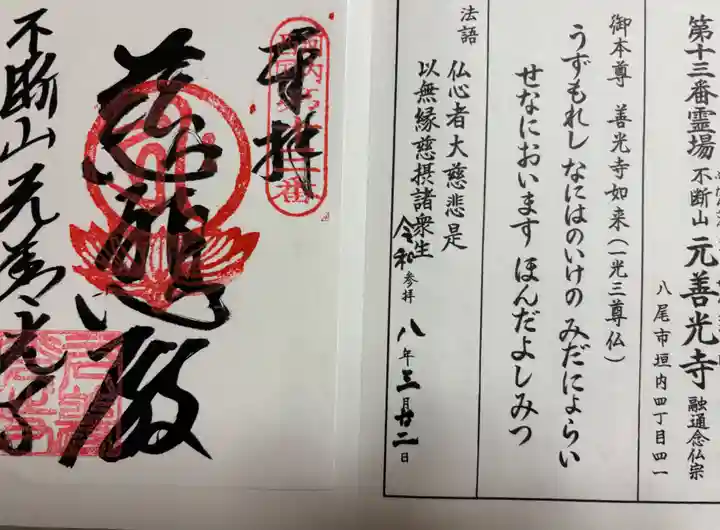 第十三番霊場 不断山 元善光寺 融通念仏宗
八尾市垣内四丁目四一
御本尊 善光寺如来(一光三尊仏)
うずもれし なにはのいけの みだによらい
せなにおいます ほんだよしみつ
法語
仏心者大慈悲是
以無縁慈摂諸衆生
令和 参拝 八年三月廿二日
奉拝
慈悲殿
不断山元善光寺